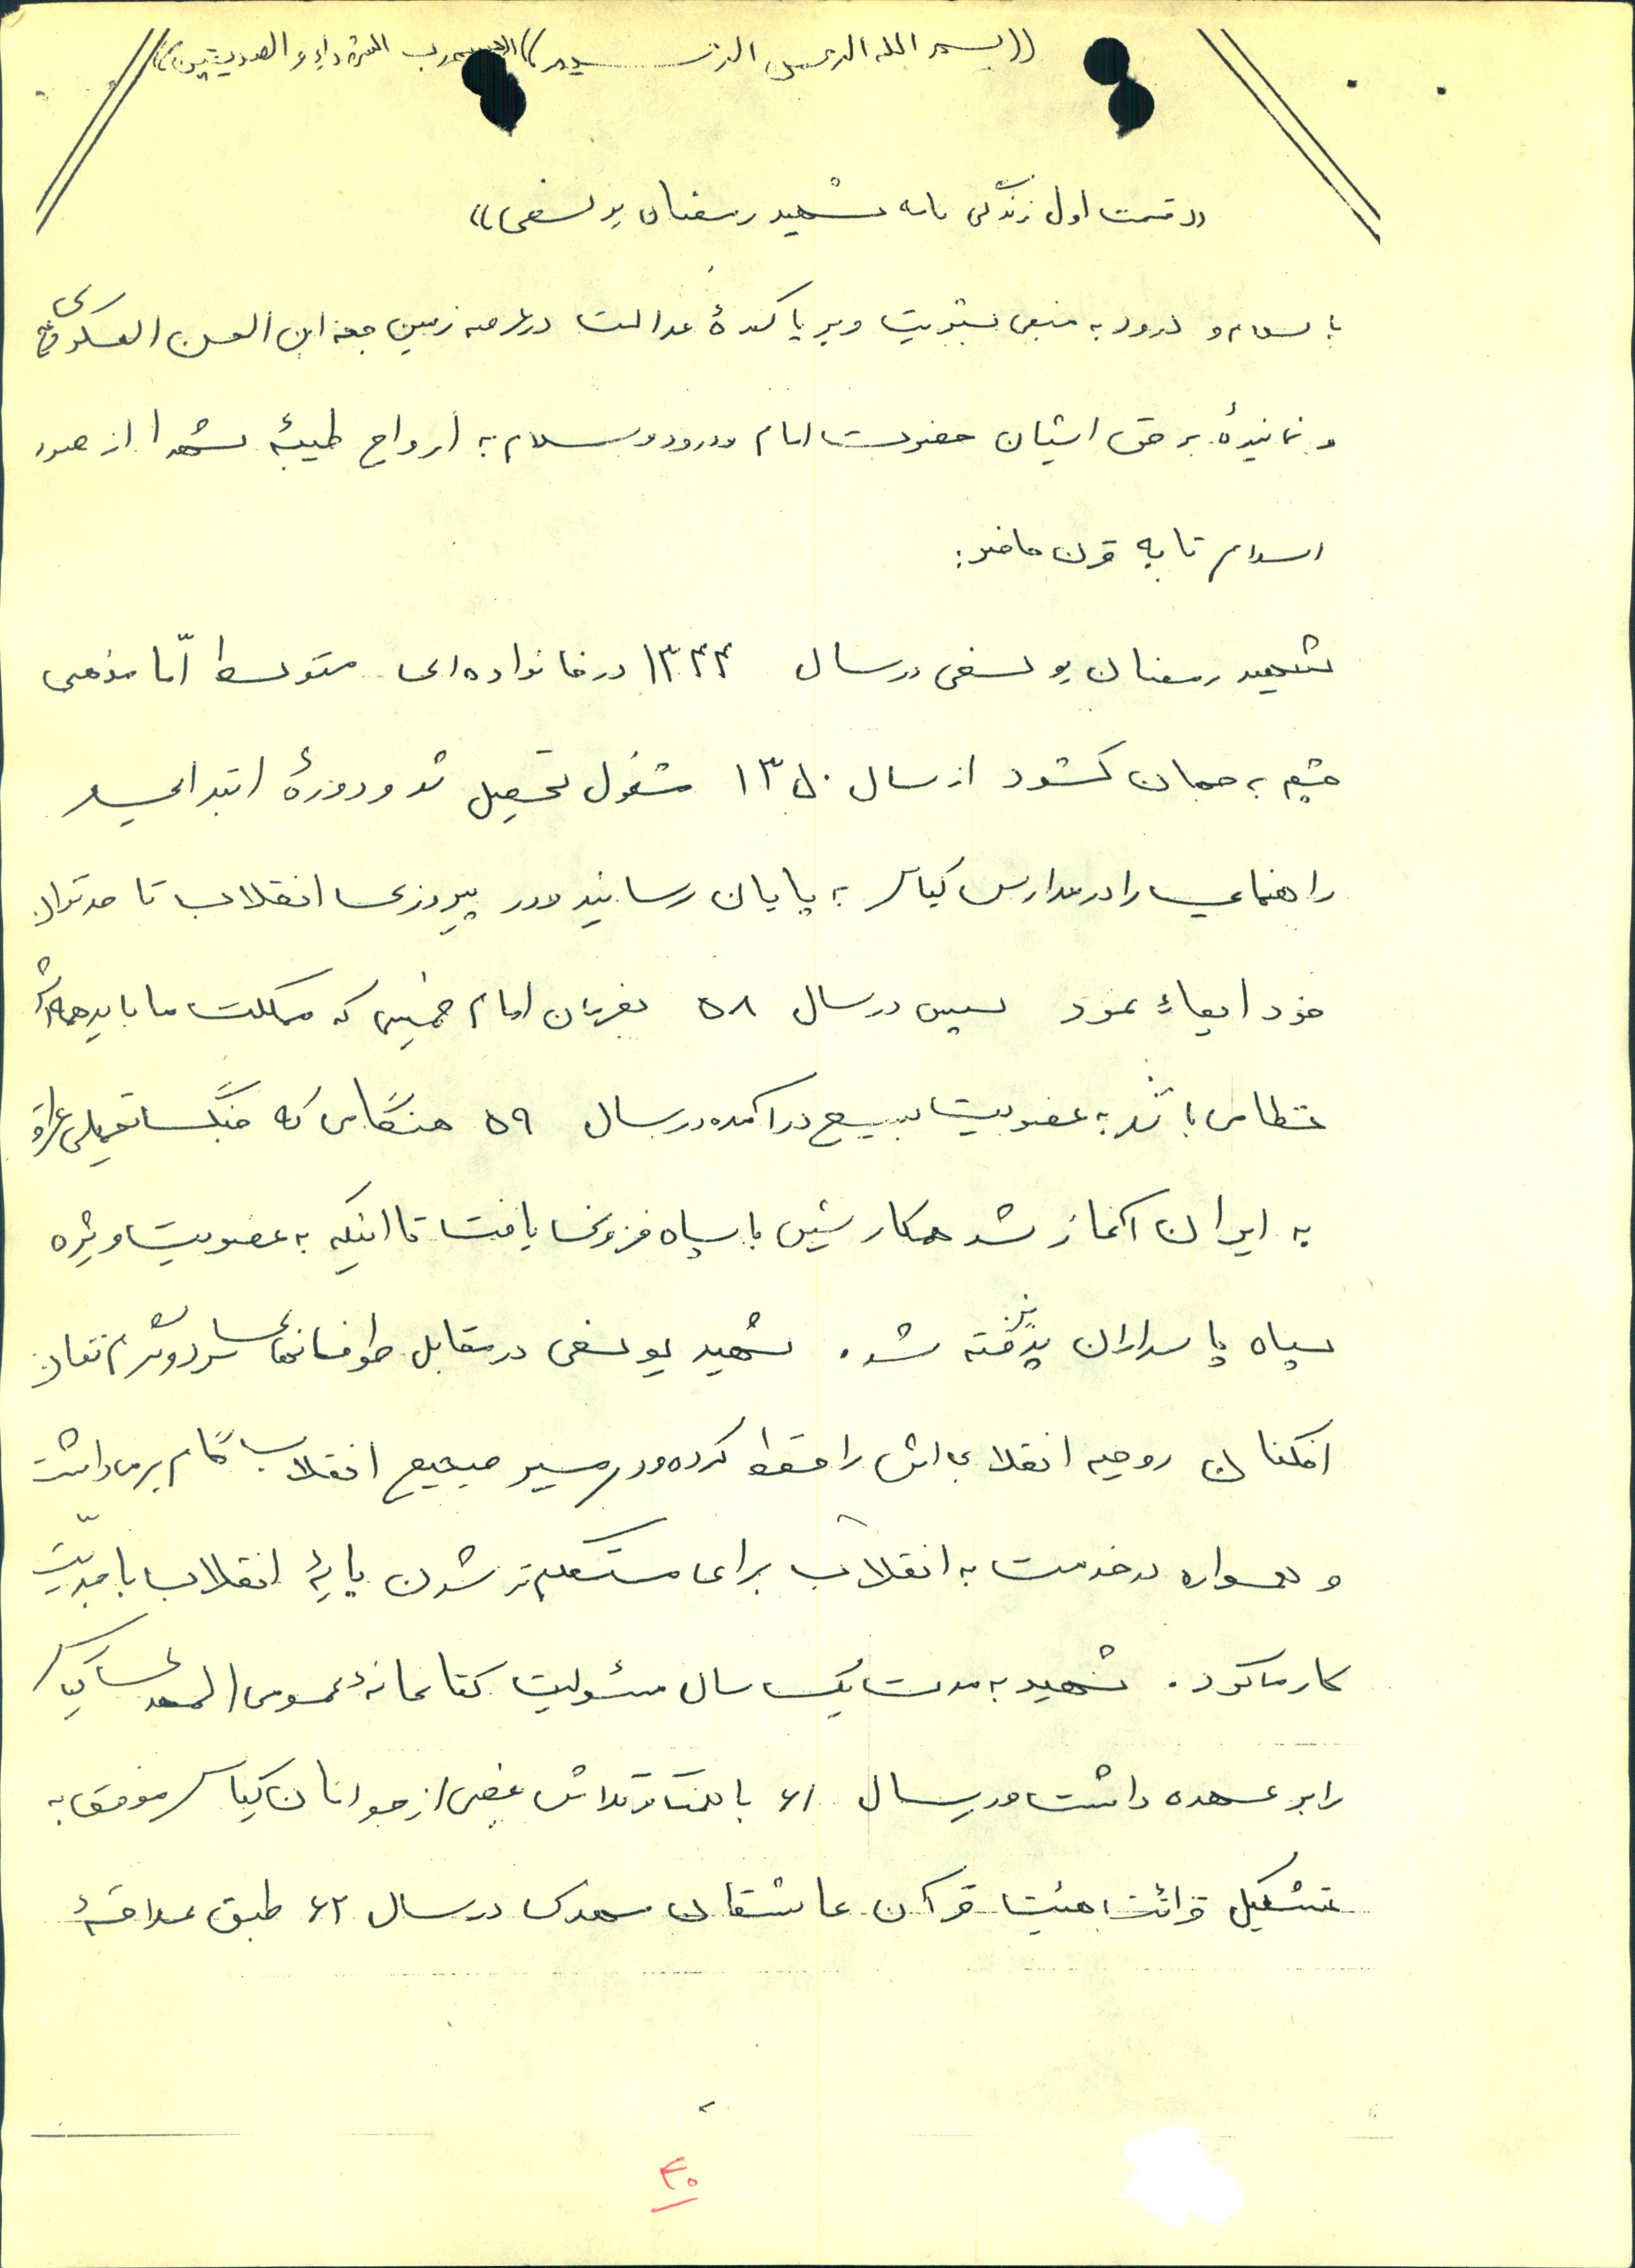 ((بسم الله الرحمن الرحیم)) الشهداء و الصدیقین))
((قسمت اول زندگی نامه شهید رمضان یوسفی))
با سلام و درود به منجی بشریت و برپا کنندۀ عدالت در عرصه زمین حجة ابن الحسن العسکری
و نمایندۀ بر حق ایشان حضرت امام و درود و سلام به ارواح طیبۀ شهدا از صدر
اسلام تا به قرن حاضر:
شهید رمضان یوسفی در سال ۱۳۴۴ در خانواده ای متوسط امّا مذهبی
چشم به جهان گشود از سال ۱۳۵۰ مشغول تحصیل شد و دورۀ ابتدایی
راهنمایی را در مدارس کیاسر به پایان رسانید و در پیروزی انقلاب تا حد توان
خود ایفاء نمود سپس در سال ۵۸ بفرمان امام خمینی که مملکت ما باید همه اش
نظامی باشد به عضویت بسیج درآمده در سال ۵۹ هنگامی که جنگ تحمیلی عراق
به ایران آغاز شد همکاریش با سپاه فزونی یافت تا اینکه به عضویت ویژه
سپاه پاسداران پذیرفته شد. شهید یوسفی در مقابل طوفانهای سرد و شرم نفاق
افکنان روحیه انقلابی اش را حفظ کرده و در مسیر صحیح انقلاب گام برمی داشت
و همواره در خدمت به انقلاب برای مستحکم تر شدن پایۀ انقلاب با جدیّت
کار می کرد. شهید به مدت یک سال مسئولیت کتابخانۀ عمومی المهدی کیاسر
را بر عهده داشت و در سال ۶۱ با همت و تلاش بعضی از جوانان کیاسر موفق به
تشکیل قرائت هیئت قرآن عاشقان مهدی در سال ۶۲ طبق علاقۀ
۳۰